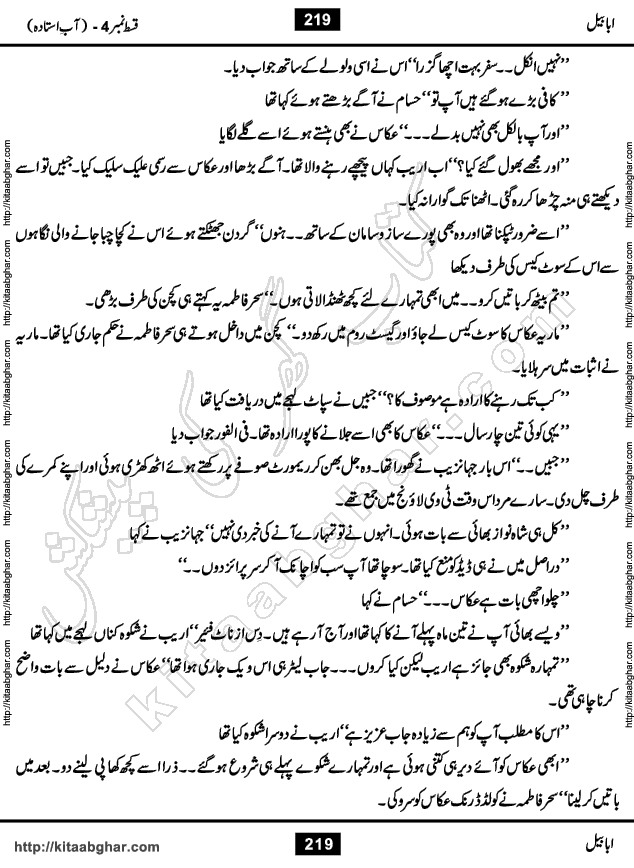 ابابیل 219 قسط نمبر 4 - (آبِ استادہ)
’’نہیں انکل۔۔سفر بہت اچھا گزرا‘‘ اس نے اسی ولولے کے ساتھ جواب دیا۔
’’کافی بڑے ہو گئے ہیں آپ تو‘‘ حسام نے آگے بڑھتے ہوئے کہا تھا
’’اور آپ بالکل بھی نہیں بدلے۔۔۔‘‘ عکاس نے بھی ہنستے ہوئے اسے گلے لگایا
’’اور مجھے بھول گئے کیا؟‘‘ اب اریب کہاں پیچھے رہنے والا تھا۔ آگے بڑھا اور عکاس سے رسمی علیک سلیک کیا۔ جبیں تو اسے
دیکھتے ہی منہ چڑھا کر رہ گئی۔ اٹھنا تک گوارا نہ کیا۔
’’اسے ضرور ٹپکنا تھا اور وہ بھی پورے ساز و سامان کے ساتھ۔۔ہنوں‘‘ گردن جھٹکتے ہوئے اس نے کچا چبا جانے والی نگاہوں
سے اس کے سوٹ کیس کی طرف دیکھا
’’تم بیٹھ کر باتیں کرو۔۔میں ابھی تمہارے لئے کچھ ٹھنڈا لاتی ہوں۔‘‘ سحر فاطمہ یہ کہتے ہی کچن کی طرف بڑھی۔
’’ماریہ عکاس کا سوٹ کیس لے جاؤ اور گیسٹ روم میں رکھ دو۔‘‘ کچن میں داخل ہوتے ہی سحر فاطمہ نے حکم جاری کیا تھا۔ ماریہ
نے اثبات میں سر ہلایا۔
’’کب تک رہنے کا ارادہ ہے موصوف کا؟‘‘ جبیں نے سپاٹ لہجے میں دریافت کیا تھا
’’یہی کوئی تین چار سال۔۔۔‘‘ عکاس کا بھی اسے جلانے کا پورا ارادہ تھا۔ فی الفور جواب دیا
’’جبیں۔۔‘‘ اس بار جہانزیب نے گھورا تھا۔ وہ جل بھن کر ریموٹ صوفے پر رکھتے ہوئے اٹھ کھڑی ہوئی اور اپنے کمرے کی
طرف چل دی۔ سارے مرد اس وقت ٹی وی لاؤنج میں جمع تھے۔
’’کل ہی شاہ نواز بھائی سے بات ہوئی۔ انہوں نے تو تمہارے آنے کی خبر دی نہیں‘‘ جہانزیب نے کہا
’’دراصل میں نے ہی ڈیڈ کو منع کیا تھا۔ سوچا تھا آپ سب کو اچانک آ کر سرپرائز دوں۔۔‘‘
’’چلو اچھی بات ہے عکاس۔۔۔‘‘ حسام نے کہا
’’ویسے بھائی آپ نے تین ماہ پہلے آنے کا کہا تھا اور آج آ رہے ہیں۔ دِس از ناٹ فئیر‘‘ اریب نے شکوہ کناں لہجے میں کہا تھا
’’تمہارا شکوہ بھی جائز ہے اریب لیکن کیا کروں۔۔۔جاب لیٹر ہی اس ویک جاری ہوا تھا‘‘ عکاس نے دلیل سے بات واضح
کرنا چاہی تھی۔
’’اس کا مطلب آپ کو ہم سے زیادہ جاب عزیز ہے‘‘ اریب نے دوسرا شکوہ کیا تھا
’’ابھی عکاس کو آئے دیر ہی کتنی ہوئی ہے اور تمہارے شکوے پہلے ہی شروع ہو گئے۔۔ذرا اسے کچھ کھا پی لینے دو۔ بعد میں
باتیں کر لینا‘‘ سحر فاطمہ نے کولڈ ڈرنک عکاس کو سرو کی۔
ابابیل 219 http://kitaabghar.com
http://kitaabghar.com http://kitaabghar.com http://kitaabghar.com http://kitaabghar.com http://kitaabghar.com http://kitaabghar.com
http://kitaabghar.com http://kitaabghar.com http://kitaabghar.com http://kitaabghar.com http://kitaabghar.com http://kitaabghar.com
کتاب گھر کی پیشکش
kitaabghar.com